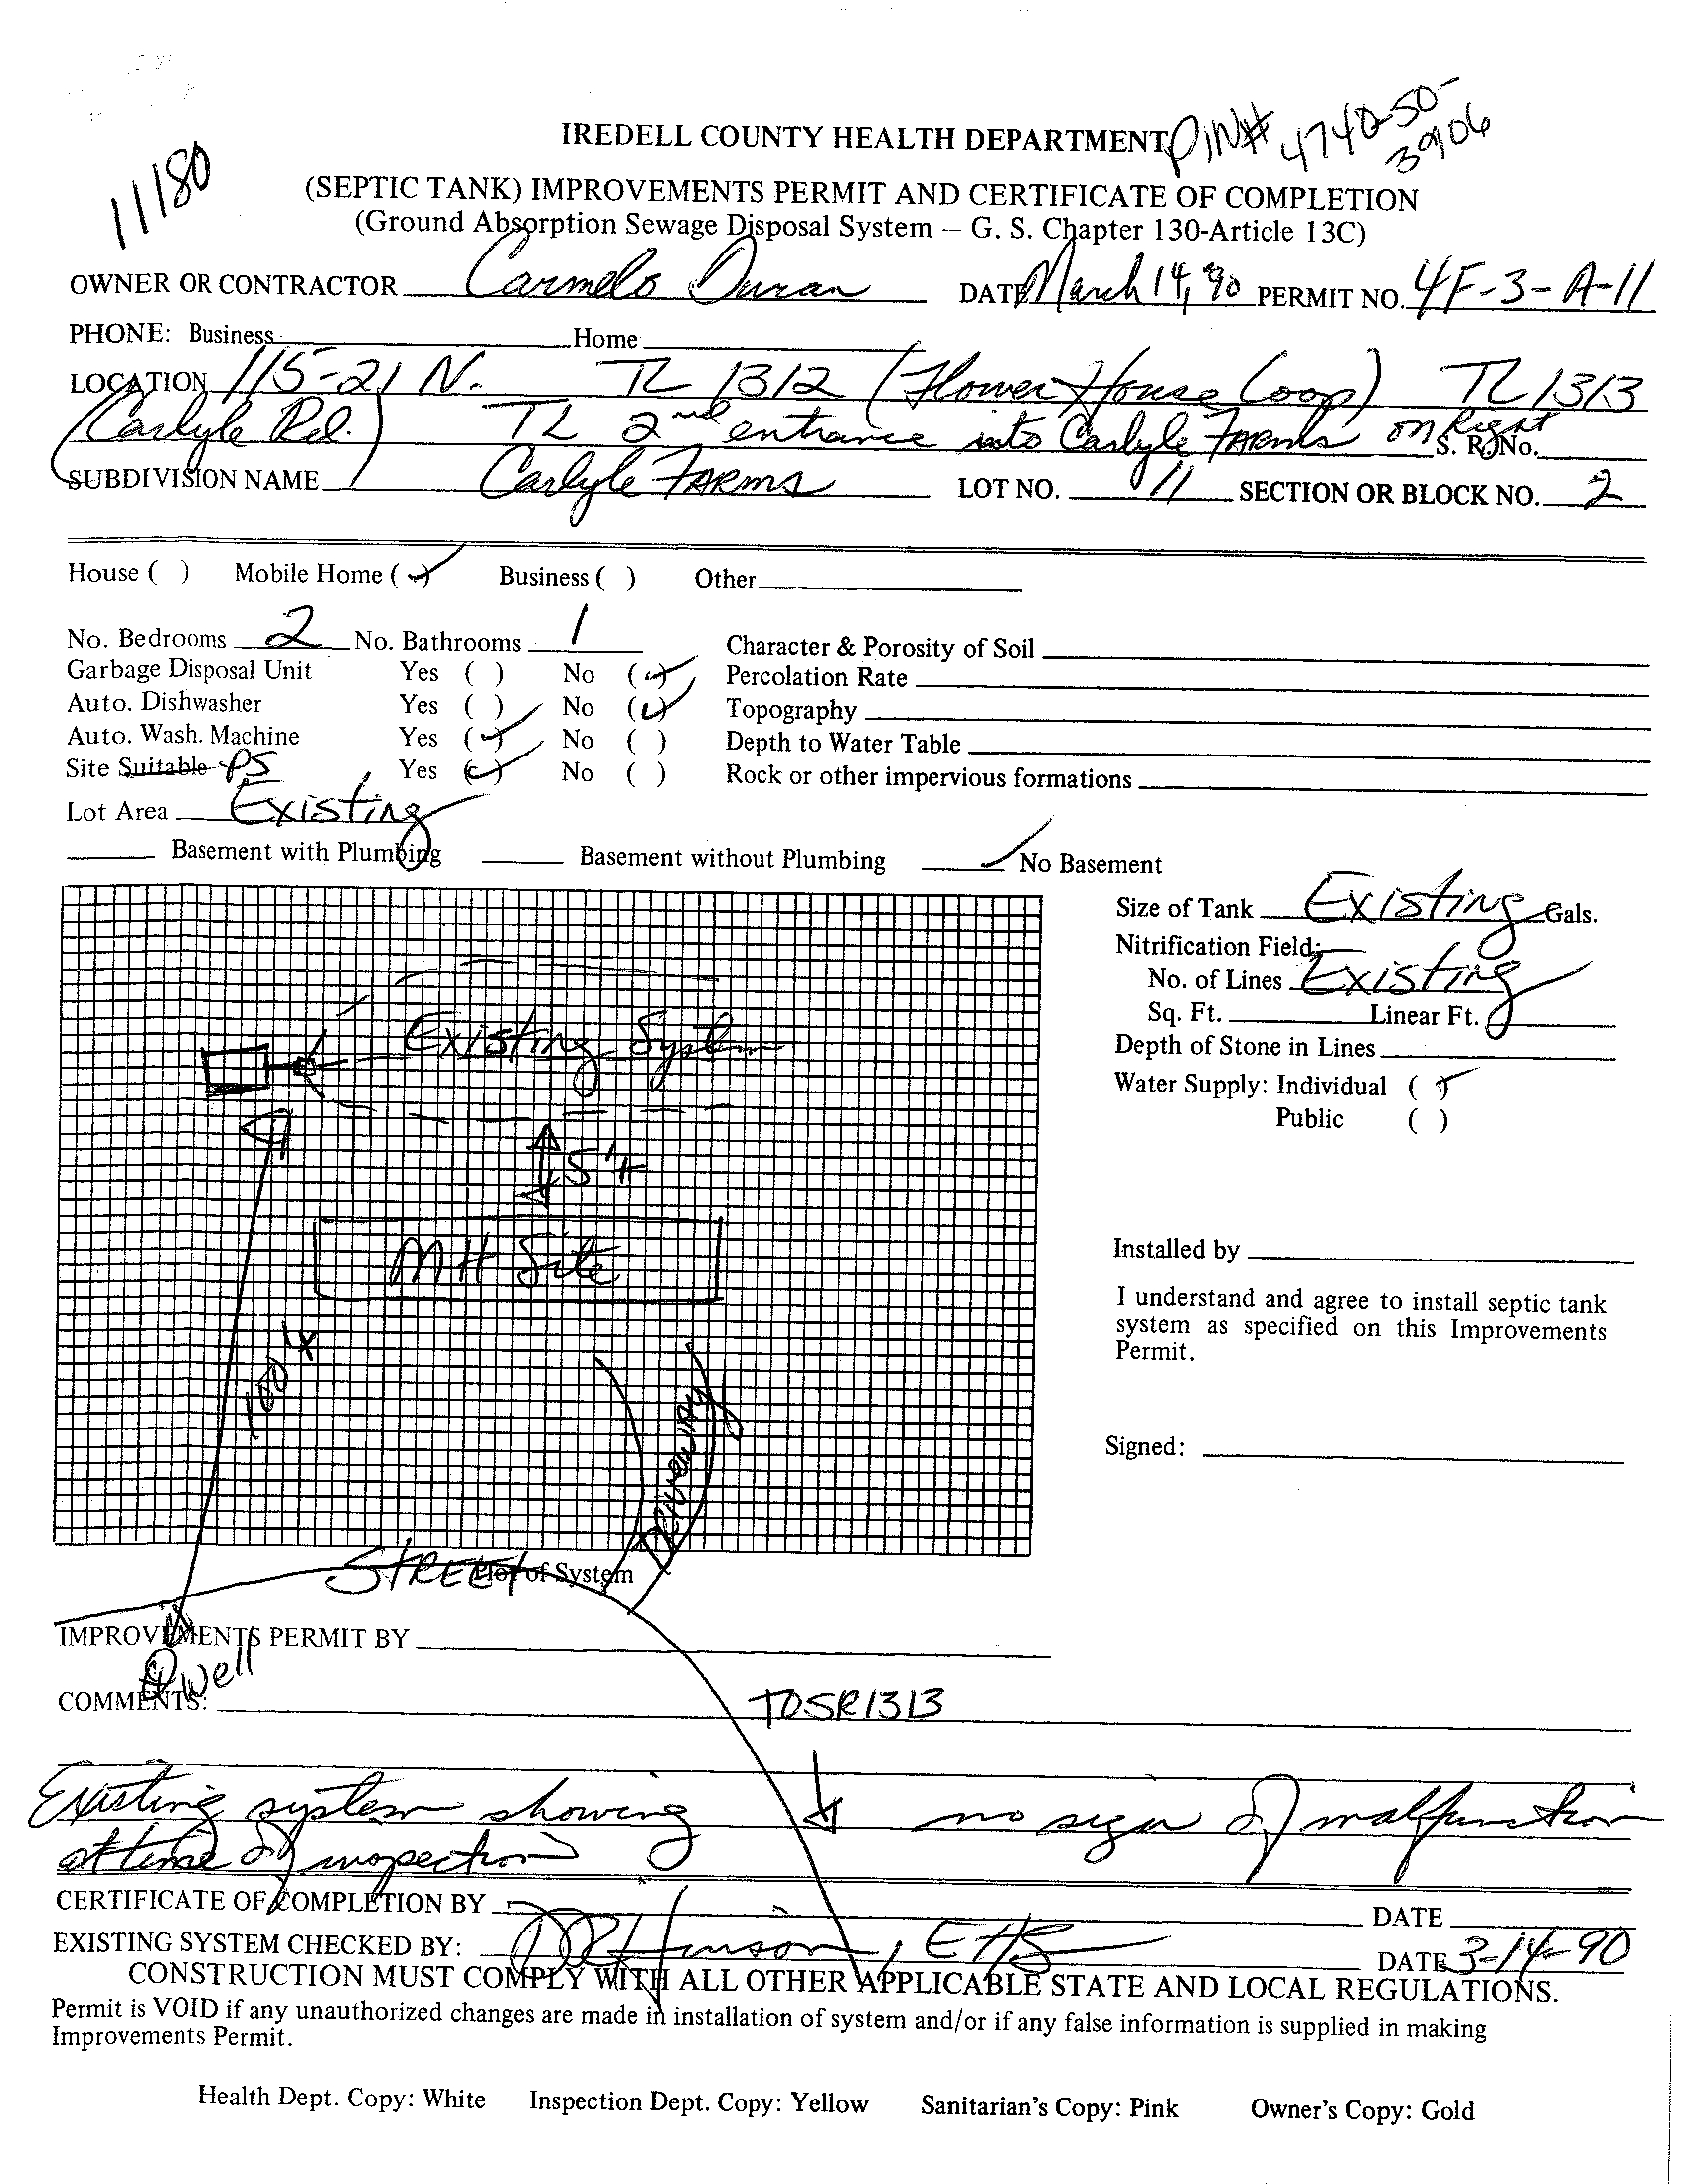 IREDELL COUNTY HEALTH DEPARTMENT PIN# 4740-50-
3906
11180
(SEPTIC TANK) IMPROVEMENTS PERMIT AND CERTIFICATE OF COMPLETION
(Ground Absorption Sewage Disposal System — G. S. Chapter 130-Article 13C)
OWNER OR CONTRACTOR Carmelo Duran DATE March 14, 90 PERMIT NO. 4F-3-A-11
PHONE: Business Home
LOCATION 115-21 N. TL 1312 (Flower House Loop) TL 1313
(Carlyle Rd.) TL 2nd entrance into Carlyle FARMS on Right S. R. No.
SUBDIVISION NAME Carlyle FARMS LOT NO. 11 SECTION OR BLOCK NO. 2
House ( ) Mobile Home (✓) Business ( ) Other
No. Bedrooms 2 No. Bathrooms 1 Character & Porosity of Soil
Garbage Disposal Unit Yes ( ) No (✓) Percolation Rate
Auto. Dishwasher Yes ( ) No (✓) Topography
Auto. Wash. Machine Yes (✓) No ( ) Depth to Water Table
Site Suitable PS Yes (✓) No ( ) Rock or other impervious formations
Lot Area Existing
Basement with Plumbing Basement without Plumbing ✓ No Basement
Size of Tank Existing Gals.
Nitrification Field:
No. of Lines Existing
Sq. Ft. Linear Ft.
Depth of Stone in Lines
Water Supply: Individual (✓)
Public ( )
Existing System
5'+
MH Site
100'+
Driveway
Installed by
I understand and agree to install septic tank
system as specified on this Improvements
Permit.
Signed:
STREET Plot of System
IMPROVEMENTS PERMIT BY
well
COMMENTS: TO SR 1313
Existing system showing no sign of malfunction
at time of inspection
CERTIFICATE OF COMPLETION BY DATE
EXISTING SYSTEM CHECKED BY: Hinson, EHS DATE 3-14-90
CONSTRUCTION MUST COMPLY WITH ALL OTHER APPLICABLE STATE AND LOCAL REGULATIONS.
Permit is VOID if any unauthorized changes are made in installation of system and/or if any false information is supplied in making
Improvements Permit.
Health Dept. Copy: White Inspection Dept. Copy: Yellow Sanitarian's Copy: Pink Owner's Copy: Gold